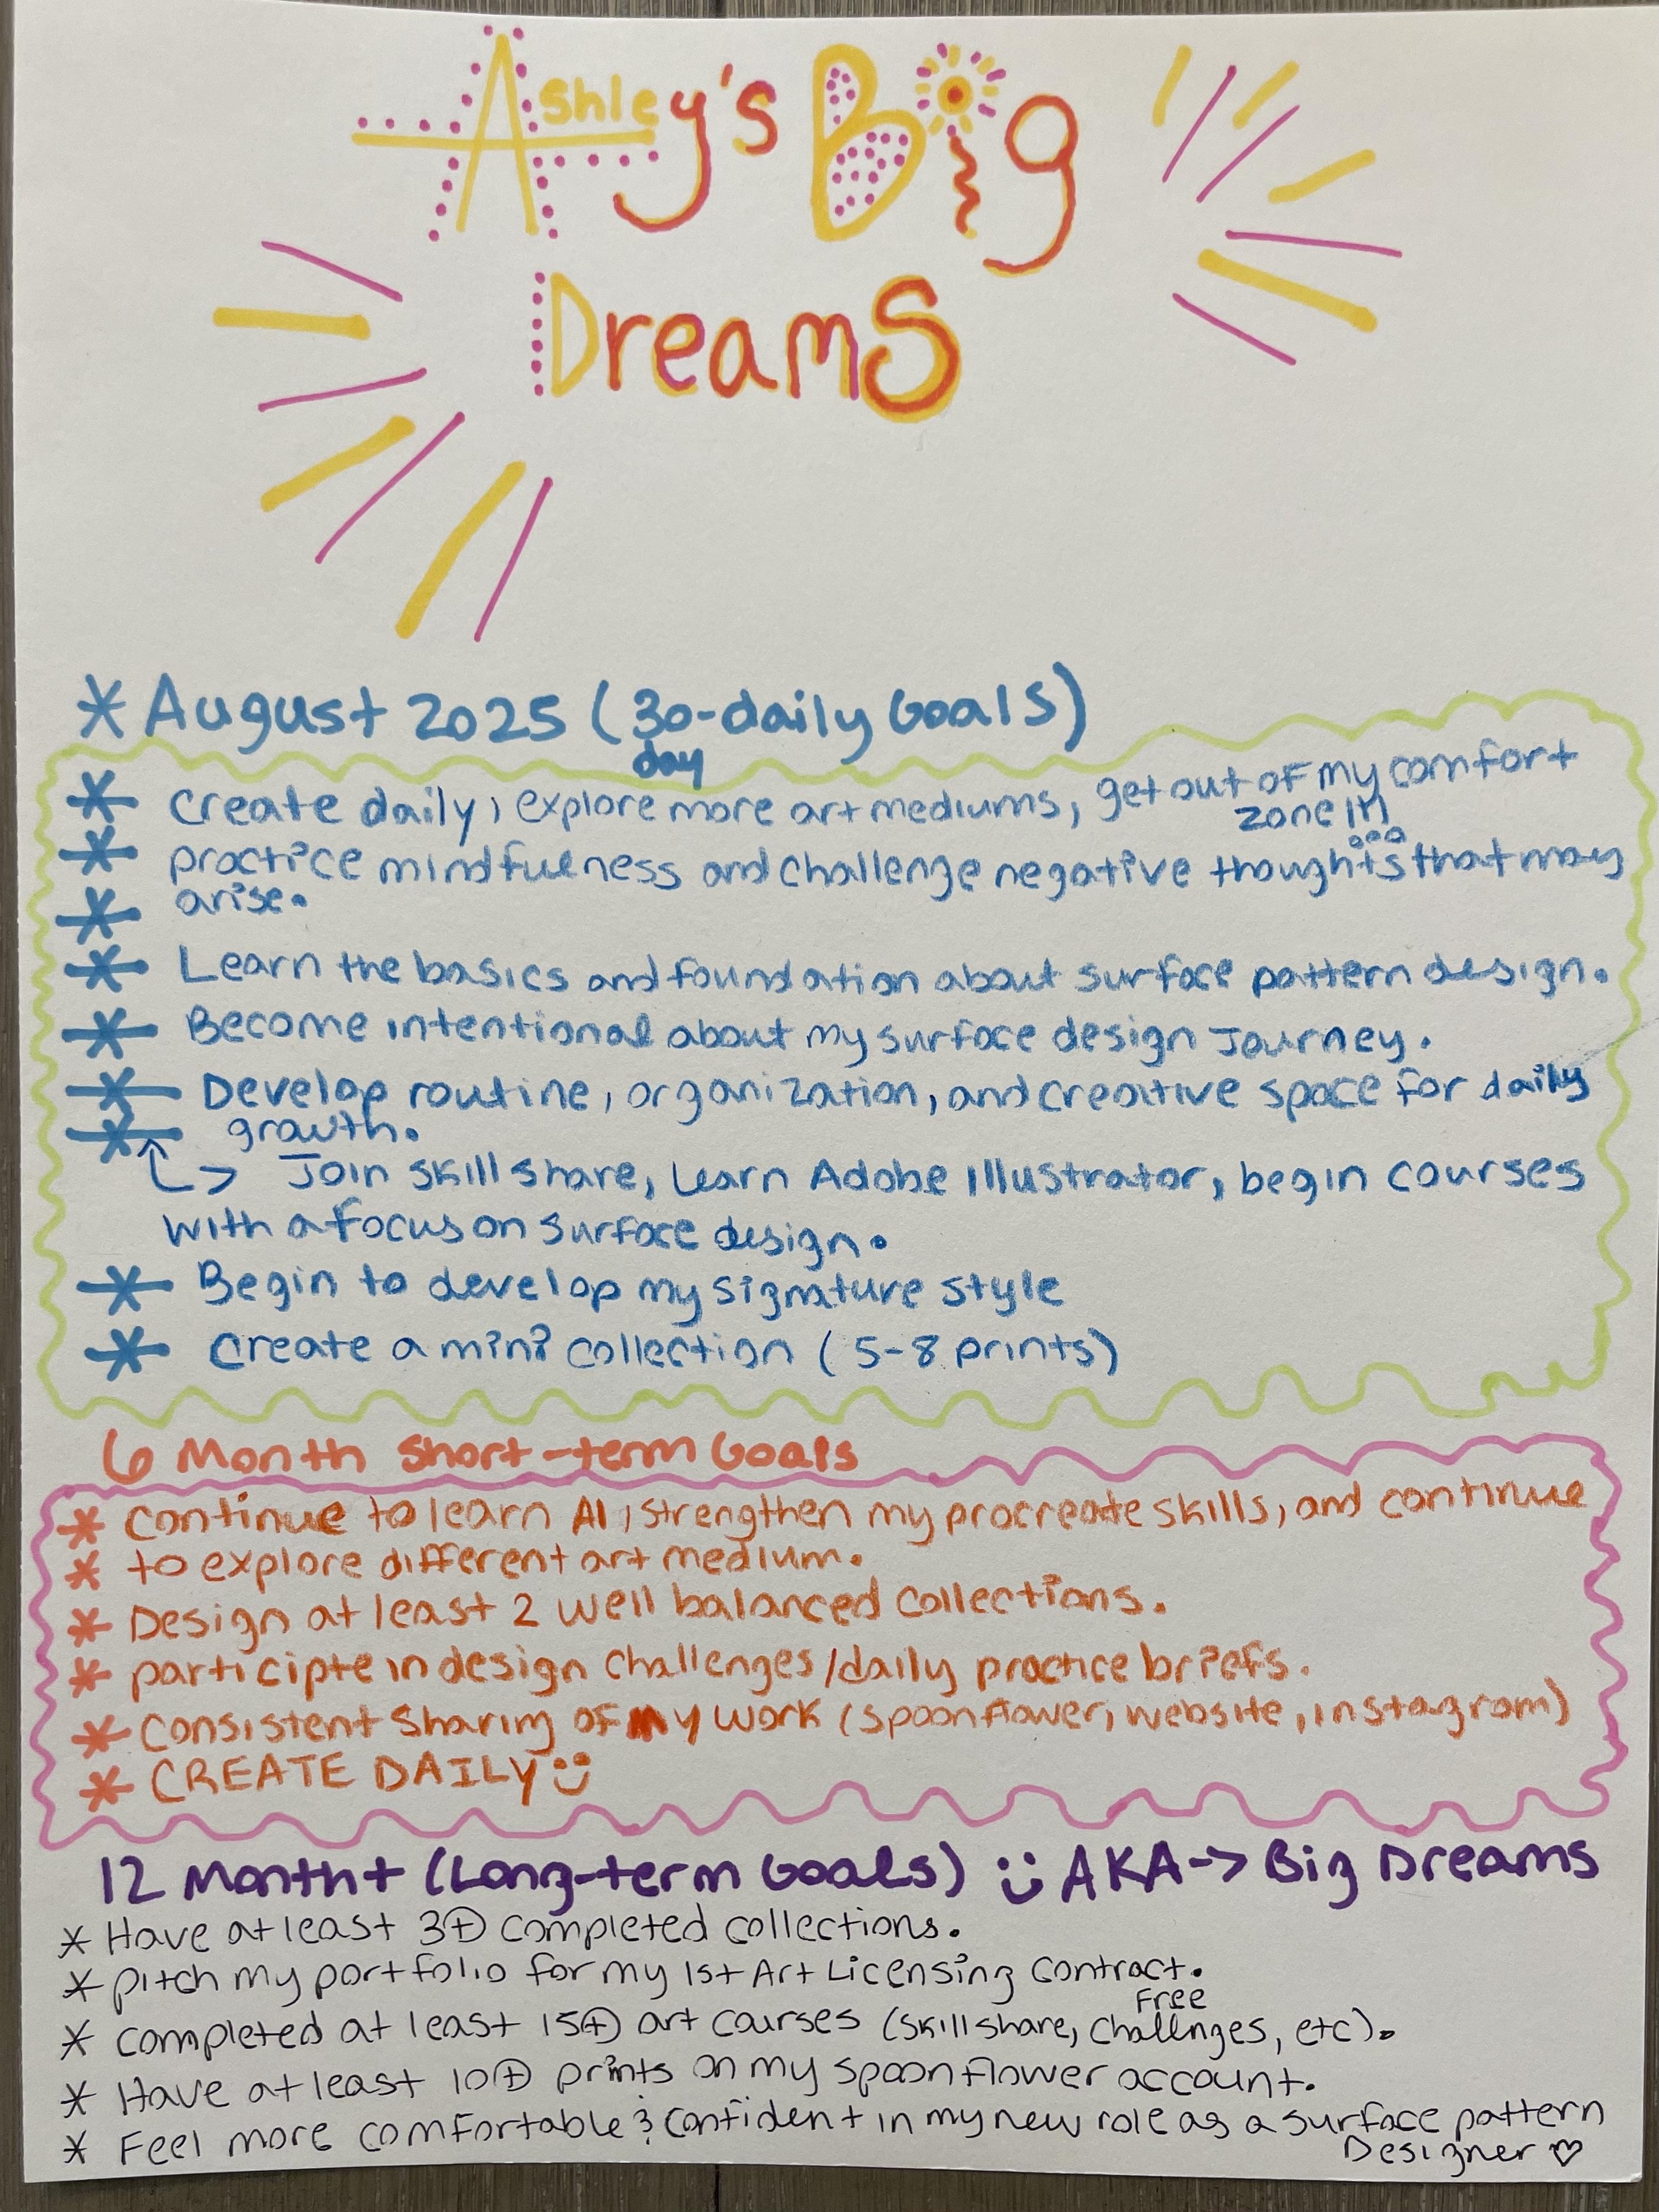 Ashley's Big
Dreams
* August 2025 (30-daily Goals)
day
* Create daily, explore more art mediums, get out of my comfort
zone!!!
* practice mindfulness and challenge negative thoughts that may
* arise.
* Learn the basics and foundation about surface pattern design.
* Become intentional about my surface design Journey.
* Develop routine, organization, and creative space for daily
* growth.
↳ Join skillshare, Learn Adobe Illustrator, begin courses
with a focus on surface design.
* Begin to develop my signature style
* Create a mini collection (5-8 prints)
6 Month Short-term Goals
* Continue to learn AI, strengthen my procreate skills, and continue
* to explore different art medium.
* Design at least 2 well balanced collections.
* participte in design challenges/daily practice briefs.
* Consistent Sharing of my work (spoonflower, website, instagram)
* CREATE DAILY :)
12 Month+ (Long-term Goals) :) AKA -> Big Dreams
* Have at least 3+ completed collections.
* pitch my portfolio for my 1st Art Licensing Contract.
Free
* completed at least 15+ art courses (skillshare, Challnges, etc).
* Have at least 10+ prints on my spoonflower account.
* Feel more comfortable & Confident in my new role as a surface pattern
Designer ♡